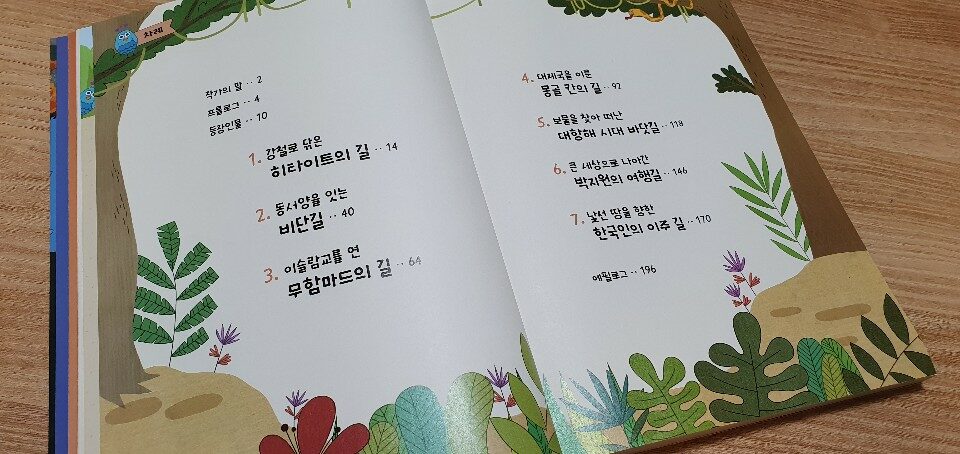 차례
작가의 말 ·· 2
프롤로그 ·· 4
등장인물 ·· 10
1. 강철로 닦은
히타이트의 길 ·· 14
2. 동서양을 잇는
비단길 ·· 40
3. 이슬람교를 연
무함마드의 길 ·· 64
4. 대제국을 이룬
몽골 칸의 길 ·· 92
5. 보물을 찾아 떠난
대항해 시대 바닷길 ·· 118
6. 큰 세상으로 나아간
박지원의 여행길 ·· 146
7. 낯선 땅을 향한
한국인의 이주 길 ·· 170
에필로그 ·· 196